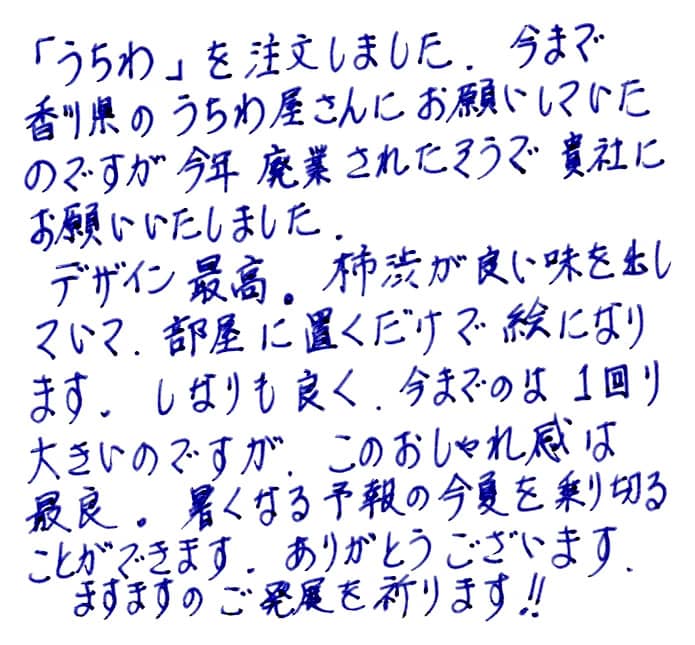 「うちわ」を注文しました. 今まで
香川県のうちわ屋さんにお願いしていた
のですが今年廃業されたそうで貴社に
お願いいたしました.
デザイン最高。柿渋が良い味を出し
ていて. 部屋に置くだけで絵になり
ます. しなりも良く. 今までのは1回り
大きいのですが. このおしゃれ感は
最良。暑くなる予報の今夏を乗り切る
ことができます. ありがとうございます.
ますますのご発展を祈ります!!